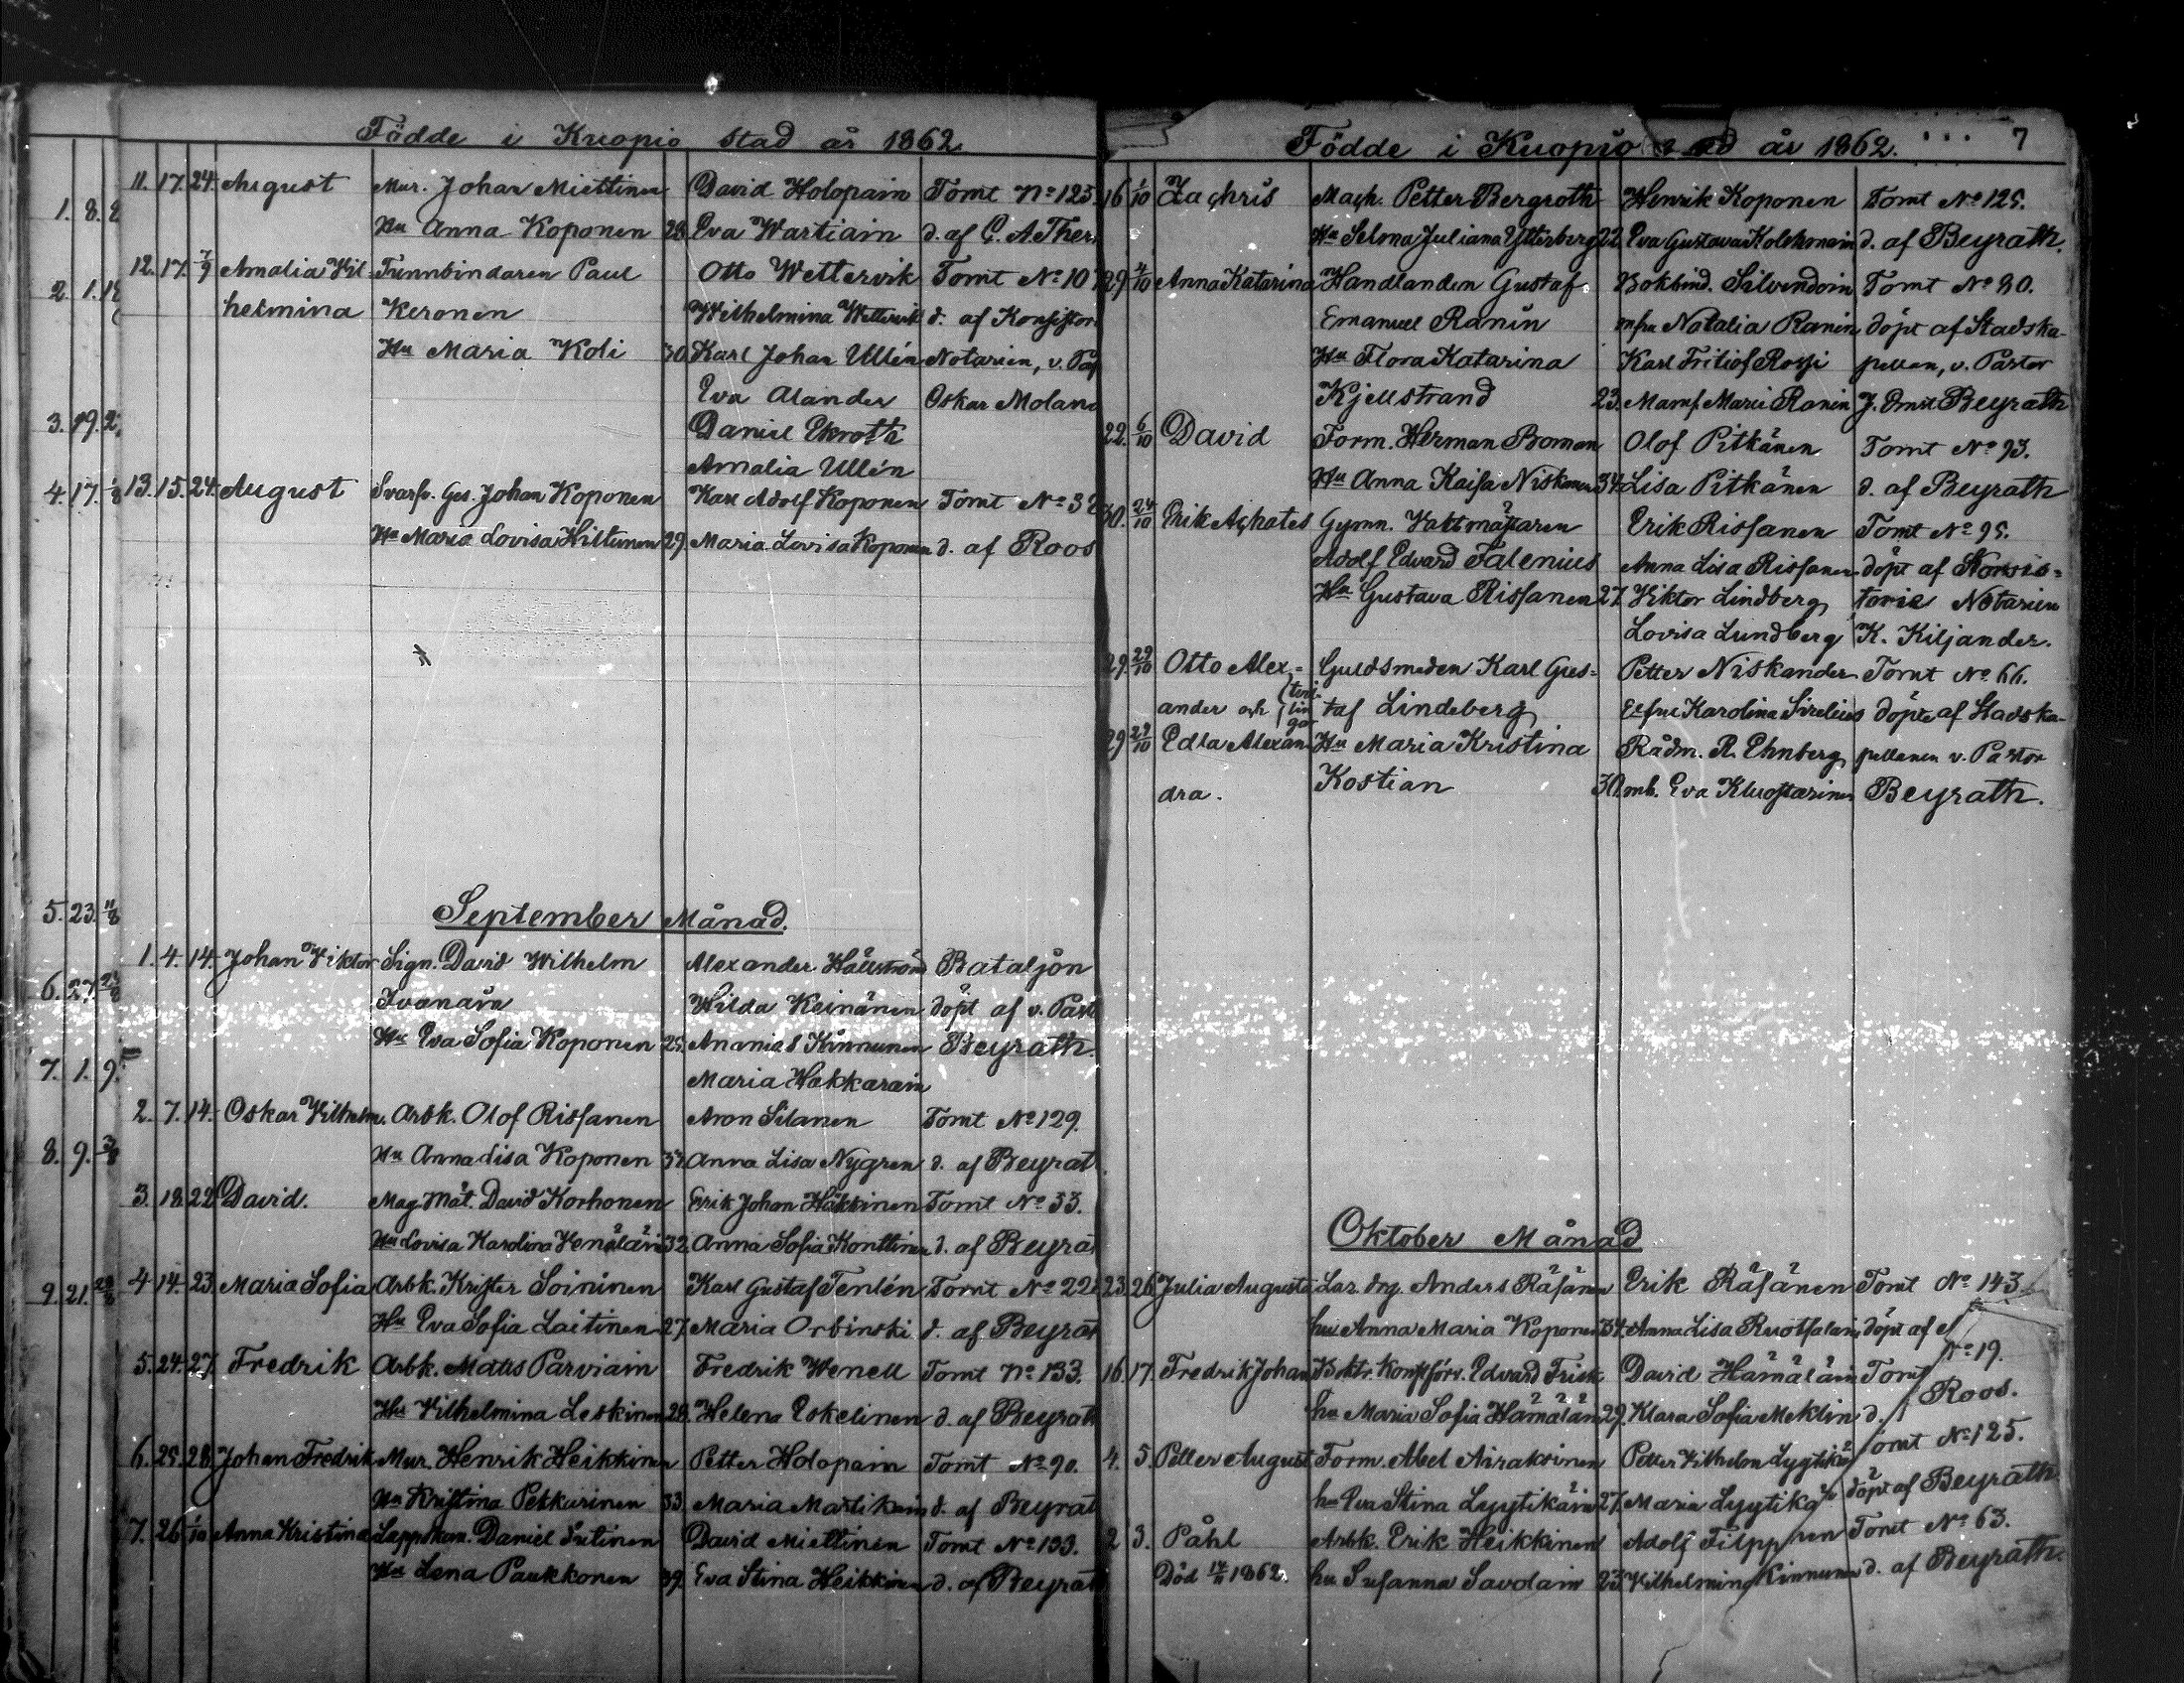 Födde i Kuopio stad år 1862.
11. 17. 24. August Mur. Johan Miettinen David Holopain Tomt No 125.
1. 8. Hu Anna Koponen 28 Eva Wartiain d. af
12. 17. 7/9 Amalia Vil Tunnbindaren Paul Otto Wettervik Tomt No 10
2. 1. helmina Keronen Wilhelmina Wettervik d. af Konsistor
Hu Maria Koli 30 Karl Johan Ullén Notarien, v. Pas
Eva Alander Oskar Molan
3. 19. Daniel Ekroth
Amalia Ullén
4. 17. 13. 15. 24. August Svarfv. Ges. Johan Koponen Karl Adolf Koponen Tomt No 32
Hu Maria Lovisa Hiltunen 29. Maria Lovisa Koponen d. af Roos
5. 23. 11/8 September Månad.
1. 4. 14. Johan Viktor Sign. David Wilhelm Alexander Hällström Bataljon
6. 27. Ivanain Hilda Keinänen döpt af v. Past
Hu Eva Sofia Koponen 25. Ananias Kinnunen Beyrath.
7. 1. 9. Maria Hakkarain
2. 7. 14. Oskar Vilhelm. Arbk. Olof Rissanen Aron Silanen Tomt No 129.
8. 9. 3/8 Hu Anna Lisa Koponen Anna Lisa Nygren d. af Beyrat
3. 18. 22. David. Mag. Mät. David Korhonen Erik Johan Häkkinen Tomt No 33.
Hu Lovisa Karolina Venäläin 32. Anna Sofia Konttinen d. af Beyra
9. 21. 4. 14. 23. Maria Sofia Arbk. Krister Soininen Karl Gustaf Tenlén Tomt No 22
Hu Eva Sofia Laitinen 27. Maria Orbinski d. af Beyra
5. 24. 27. Fredrik Arbk. Mats Parviain Fredrik Wenell Tomt No 133.
Hu Vilhelmina Leskinen 28. Helena Eskelinen d. af Beyrath
6. 25. 28. Johan Fredrik Mur. Henrik Heikkinen Petter Holopain Tomt No 90.
Hu Kristina Pekkarinen 33. Maria Martikain d. af Beyrat
7. 26. 1/10 Anna Kristina Daniel Sutinen David Miettinen Tomt No 133.
Hu Lena Paukkonen 39. Eva Stina Heikkinen d. af Beyrat
Födde i Kuopio stad år 1862. 7
16 1/10 Zachris Petter Bergroth Henrik Koponen Tomt No 125.
Hu Selma Juliana Ytterberg 22. Eva Gustava Kolehmain d. af Beyrath.
29. 4/10 Anna Katarina Handlanden Gustaf Bokbind. Silvendoin Tomt No 80.
Emanuel Ranin mfru Natalia Ranin döpt af Stadska-
Hu Flora Katarina Karl Fritiof Rossi pellan, v. Pastor
Kjellstrand 23. Mamf. Marie Ranin J. Ernst Beyrath
22. 6/10 David Form. Herman Boman Olof Pitkänen Tomt No 93.
Hu Anna Kaisa Niskanen 34. Lisa Pitkänen d. af Beyrath
30. 24/10 Erik Achates Gymn. Vaktmästaren Erik Rissanen Tomt No 95.
Adolf Edvard Falenius Anna Lisa Rissanen döpt af Konsis=
Hu Gustava Rissanen 27. Viktor Lindberg torie Notarien
Lovisa Lundberg K. Kiljander.
29. 29/10 Otto Alex= Guldsmeden Karl Gus= Petter Niskander Tomt No 66.
ander och (tvil-lin-gar taf Lindeberg Karolina Sirelius döpte af Stadska-
29 29/10 Edla Alexan- Hu Maria Kristina Rådm. R. Ehnberg pellanen v. Pastor
dra. Kostian 30. Eva Beyrath.
Oktober Månad
23. 26. Julia Augusta Anders Räsänen Erik Räsänen Tomt No 143
hu Anna Maria Koponen 34. Anna Lisa Ruotsalain döpt af
16. 17. Fredrik Johan Edvard Frisk David Hämäläin Tomt No 19.
hu Maria Sofia Hämäläin 29. Klara Sofia Meklin d. Roos.
4. 5. Petter August Form. Abel Airaksinen Petter Vilhelm Lyytikä Tomt No 125.
hu Eva Stina Lyytikäin 27. Maria Lyytikä döpt af Beyrath
2 3. Påhl Arbk. Erik Heikkinen Adolf Filpp nen Tomt No 63.
Död 1862. hu Susanna Savolain 23. Vilhelmina Kinnunen d. af Beyrath.